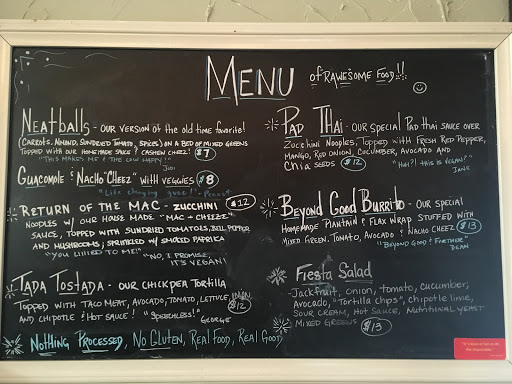 MENU of RAWESOME FOOD!!
Neatballs - our version of the old time favorite!
(Carrots, Almond, Sundried Tomato, Spices) on a bed of mixed greens
Topped with our homemade sauce & cashew cheez! $7
"This makes me & the cow happy!" Jodi
Guacomole & Nacho "Cheez" with veggies $8
"Life changing guac!!"
Return of the Mac - zucchini $12
noodles w/ our house made "mac + cheeze"
sauce, topped with sundried tomatoes, bell pepper
and mushrooms; sprinkled w/ smoked paprika
"You lillied to me!" "No, I promise,
it's vegan!"
Tada Tostada - our chickpea tortilla
topped with taco meat, avocado, tomato, lettuce, $12
and chipotle & hot sauce! "Speechless!" George
Nothing Processed, No Gluten, Real Food, Real Good
Pad Thai - our special Pad thai sauce over
Zucchini Noodles, topped with fresh red pepper,
mango, red onion, cucumber, avocado and
Chia seeds $12 "Huh?! This is vegan?"
Jane
Beyond Good Burrito - our special
homemade plantain & flax wrap stuffed with
mixed green, tomato, avocado & nacho cheez $13
"Beyond good & further"
Dean
Fiesta Salad
Jackfruit, onion, tomato, cucumber,
Avocado, "Tortilla chips", chipotle lime,
sour cream, hot sauce, nutritional yeast
mixed greens $13